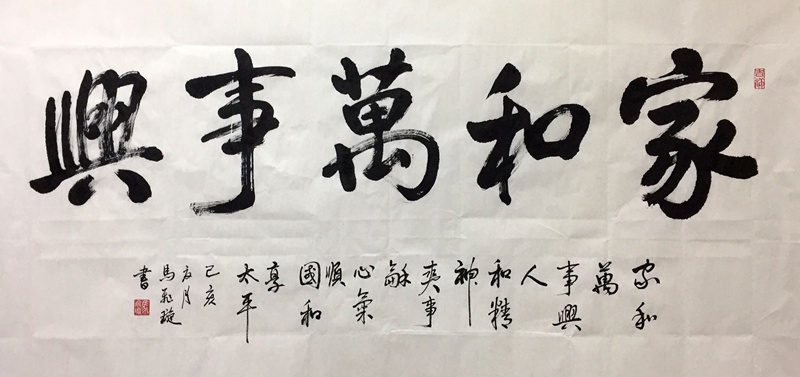 家和萬事興
家和
萬
事興
人
和精
神
爽事
龢
心氣
順
國和
享
太平
己亥
月
馬
書